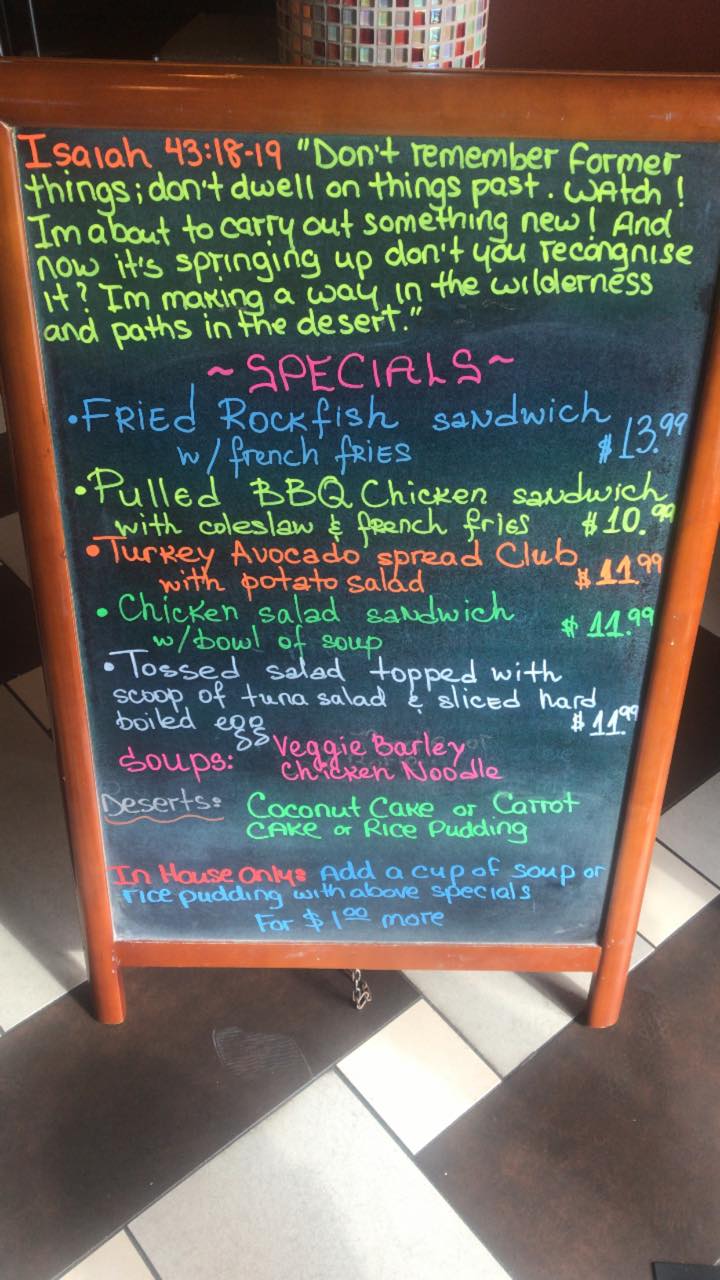 Isaiah 43:18-19 "Don't remember former
things; don't dwell on things past. WAtch!
Im about to carry out something new! And
now it's springing up don't you recongnise
it? Im making a way in the wilderness
and paths in the desert."
~SPECIALS~
•Fried Rockfish sandwich
w/ french fries $13.99
•Pulled BBQ Chicken sandwich
with coleslaw & french fries $10.99
•Turkey Avocado spread Club
with potato salad $11.99
•Chicken salad sandwich
w/bowl of soup $11.99
•Tossed salad topped with
scoop of tuna salad & sliced hard
boiled egg $11.99
Soups: Veggie Barley
Chicken Noodle
Deserts: Coconut Cake or Carrot
CAKE or Rice Pudding
In House Only: Add a cup of soup or
rice pudding with above specials
For $1.00 more